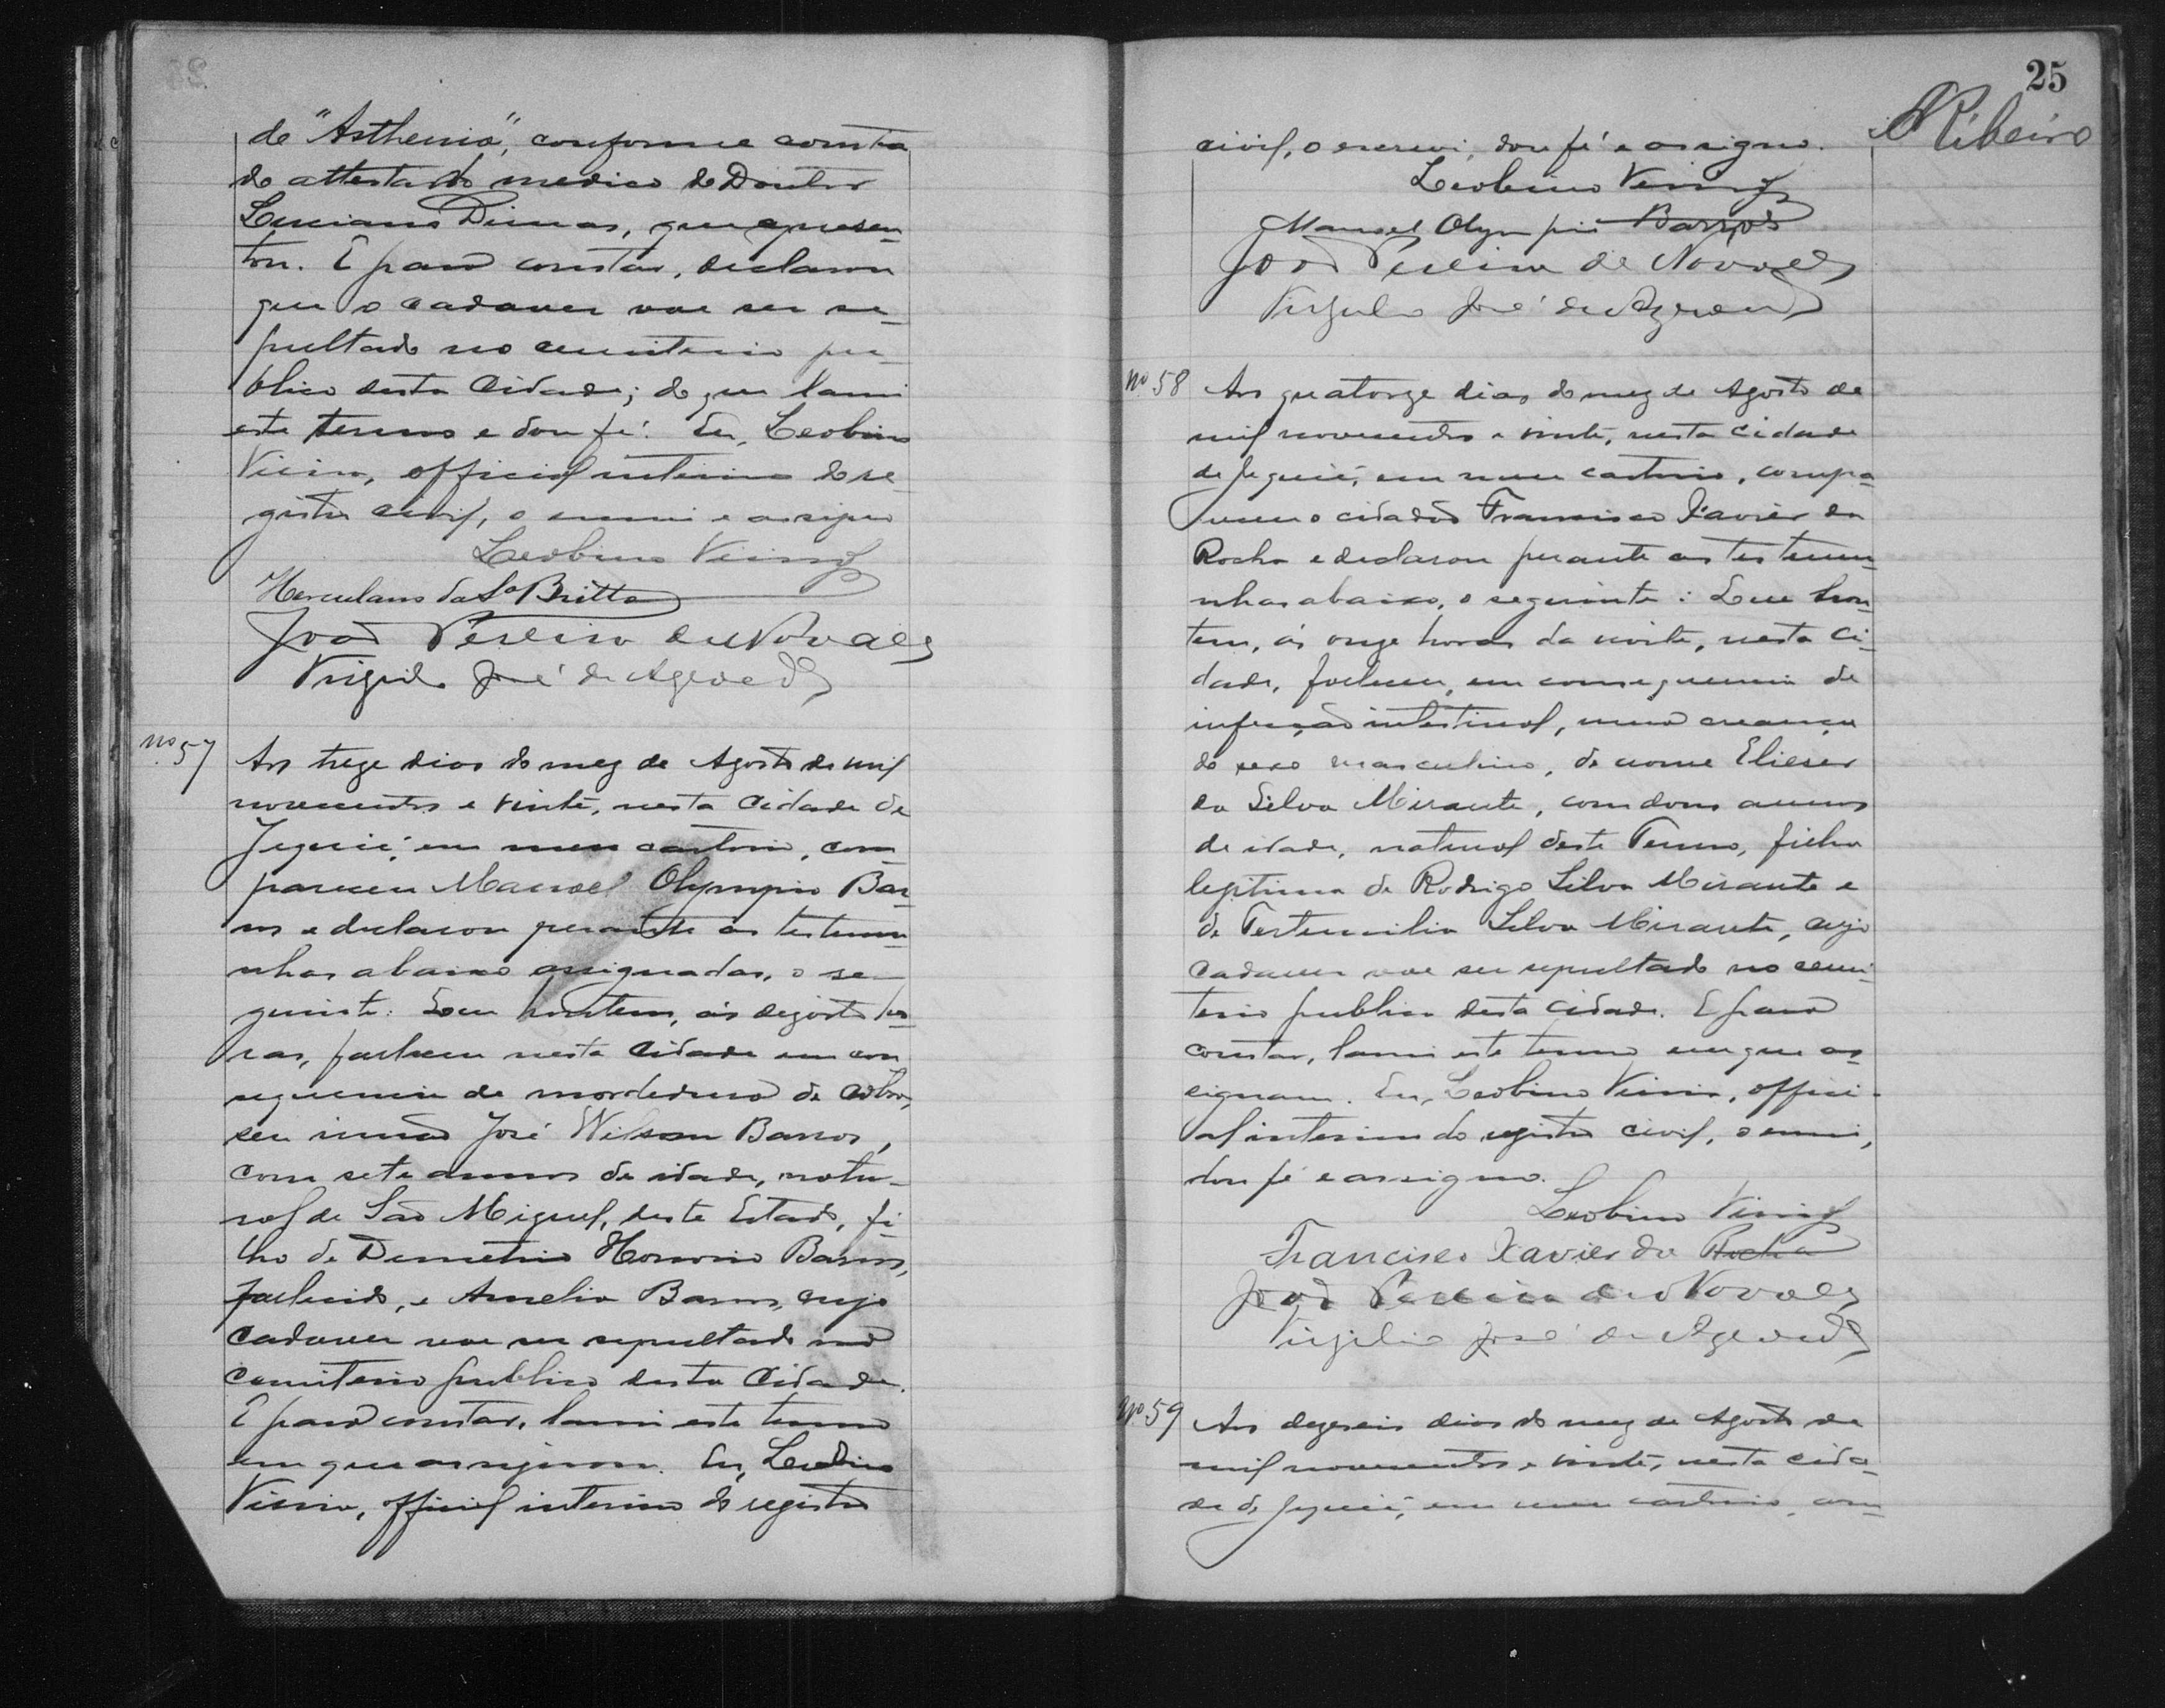 de "Asthenia", conforme consta
do attestado medico do Doutor
Luciano Dimas, que apresen-
tou. E para constar, declarou
que o cadaver vae ser se-
pultado no cemiterio pu-
blico desta Cidade; do que lavrei
este termo e dou fé. Eu, Leobino
Vieira, official interino do re-
gistro civil, o escrevi e assigno
Leobino Vieira
Herculano da Sª Britto
João Pereira de Novaes
Virgilio José de Azevedo
Nº 57
Aos treze dias do mez de Agosto de mil
novecentos e vinte, nesta Cidade de
Jequié, em meu cartorio, com-
pareceu Manoel Olympio Bar-
ros e declarou perante as testemu-
nhas abaixo assignadas, o se-
guinte: Que hontem, ás dezoito ho-
ras, falleceu nesta Cidade em con
sequencia de mordedura de cobra,
seu irmão José Wilson Barros,
com sete annos de idade, natu-
ral de São Miguel, deste Estado, fi-
lho de Demetrio Honorio Barros,
fallecido, e Amelia Barros, cujo
cadaver vae ser sepultado no
cemiterio publico desta Cidade.
E para constar, lavrei este termo
em que assignam. Eu, Leobino
Vieira, official interino do registro
25
Ribeiro
civil, o escrevi, dou fé e assigno.
Leobino Vieira
Manoel Olympio Barros
João Pereira de Novaes
Virgilio José de Azevedo
Nº 58
Aos quatorze dias do mez de Agosto de
mil novecentos e vinte, nesta cidade
de Jequié, em meu cartorio, compa-
receu o cidadão Francisco Xavier da
Rocha e declarou perante as testemu-
nhas abaixo, o seguinte: Que hon-
tem, ás onze horas da noite, nesta Ci-
dade, falleceu, em consequencia de
infecção intestinal, uma creança
do sexo masculino, de nome Elieser
da Silva Mirante, com dous annos
de idade, natural deste Termo, filho
legitimo de Rodrigo Silva Mirante e
de Silva Mirante, cujo
cadaver vae ser sepultado no cemi-
terio publico desta cidade. E para
constar, lavrei este termo em que as-
signam. Eu, Leobino Vieira, offici-
al interino do registro civil, o escrevi,
dou fé e assigno.
Leobino Vieira
Francisco Xavier da Rocha
João Pereira de Novaes
Virgilio José de Azevedo
Nº 59
Aos dezeseis dias do mez de Agosto de
mil novecentos e vinte, nesta cida-
de de Jequié, em meu cartorio, com-